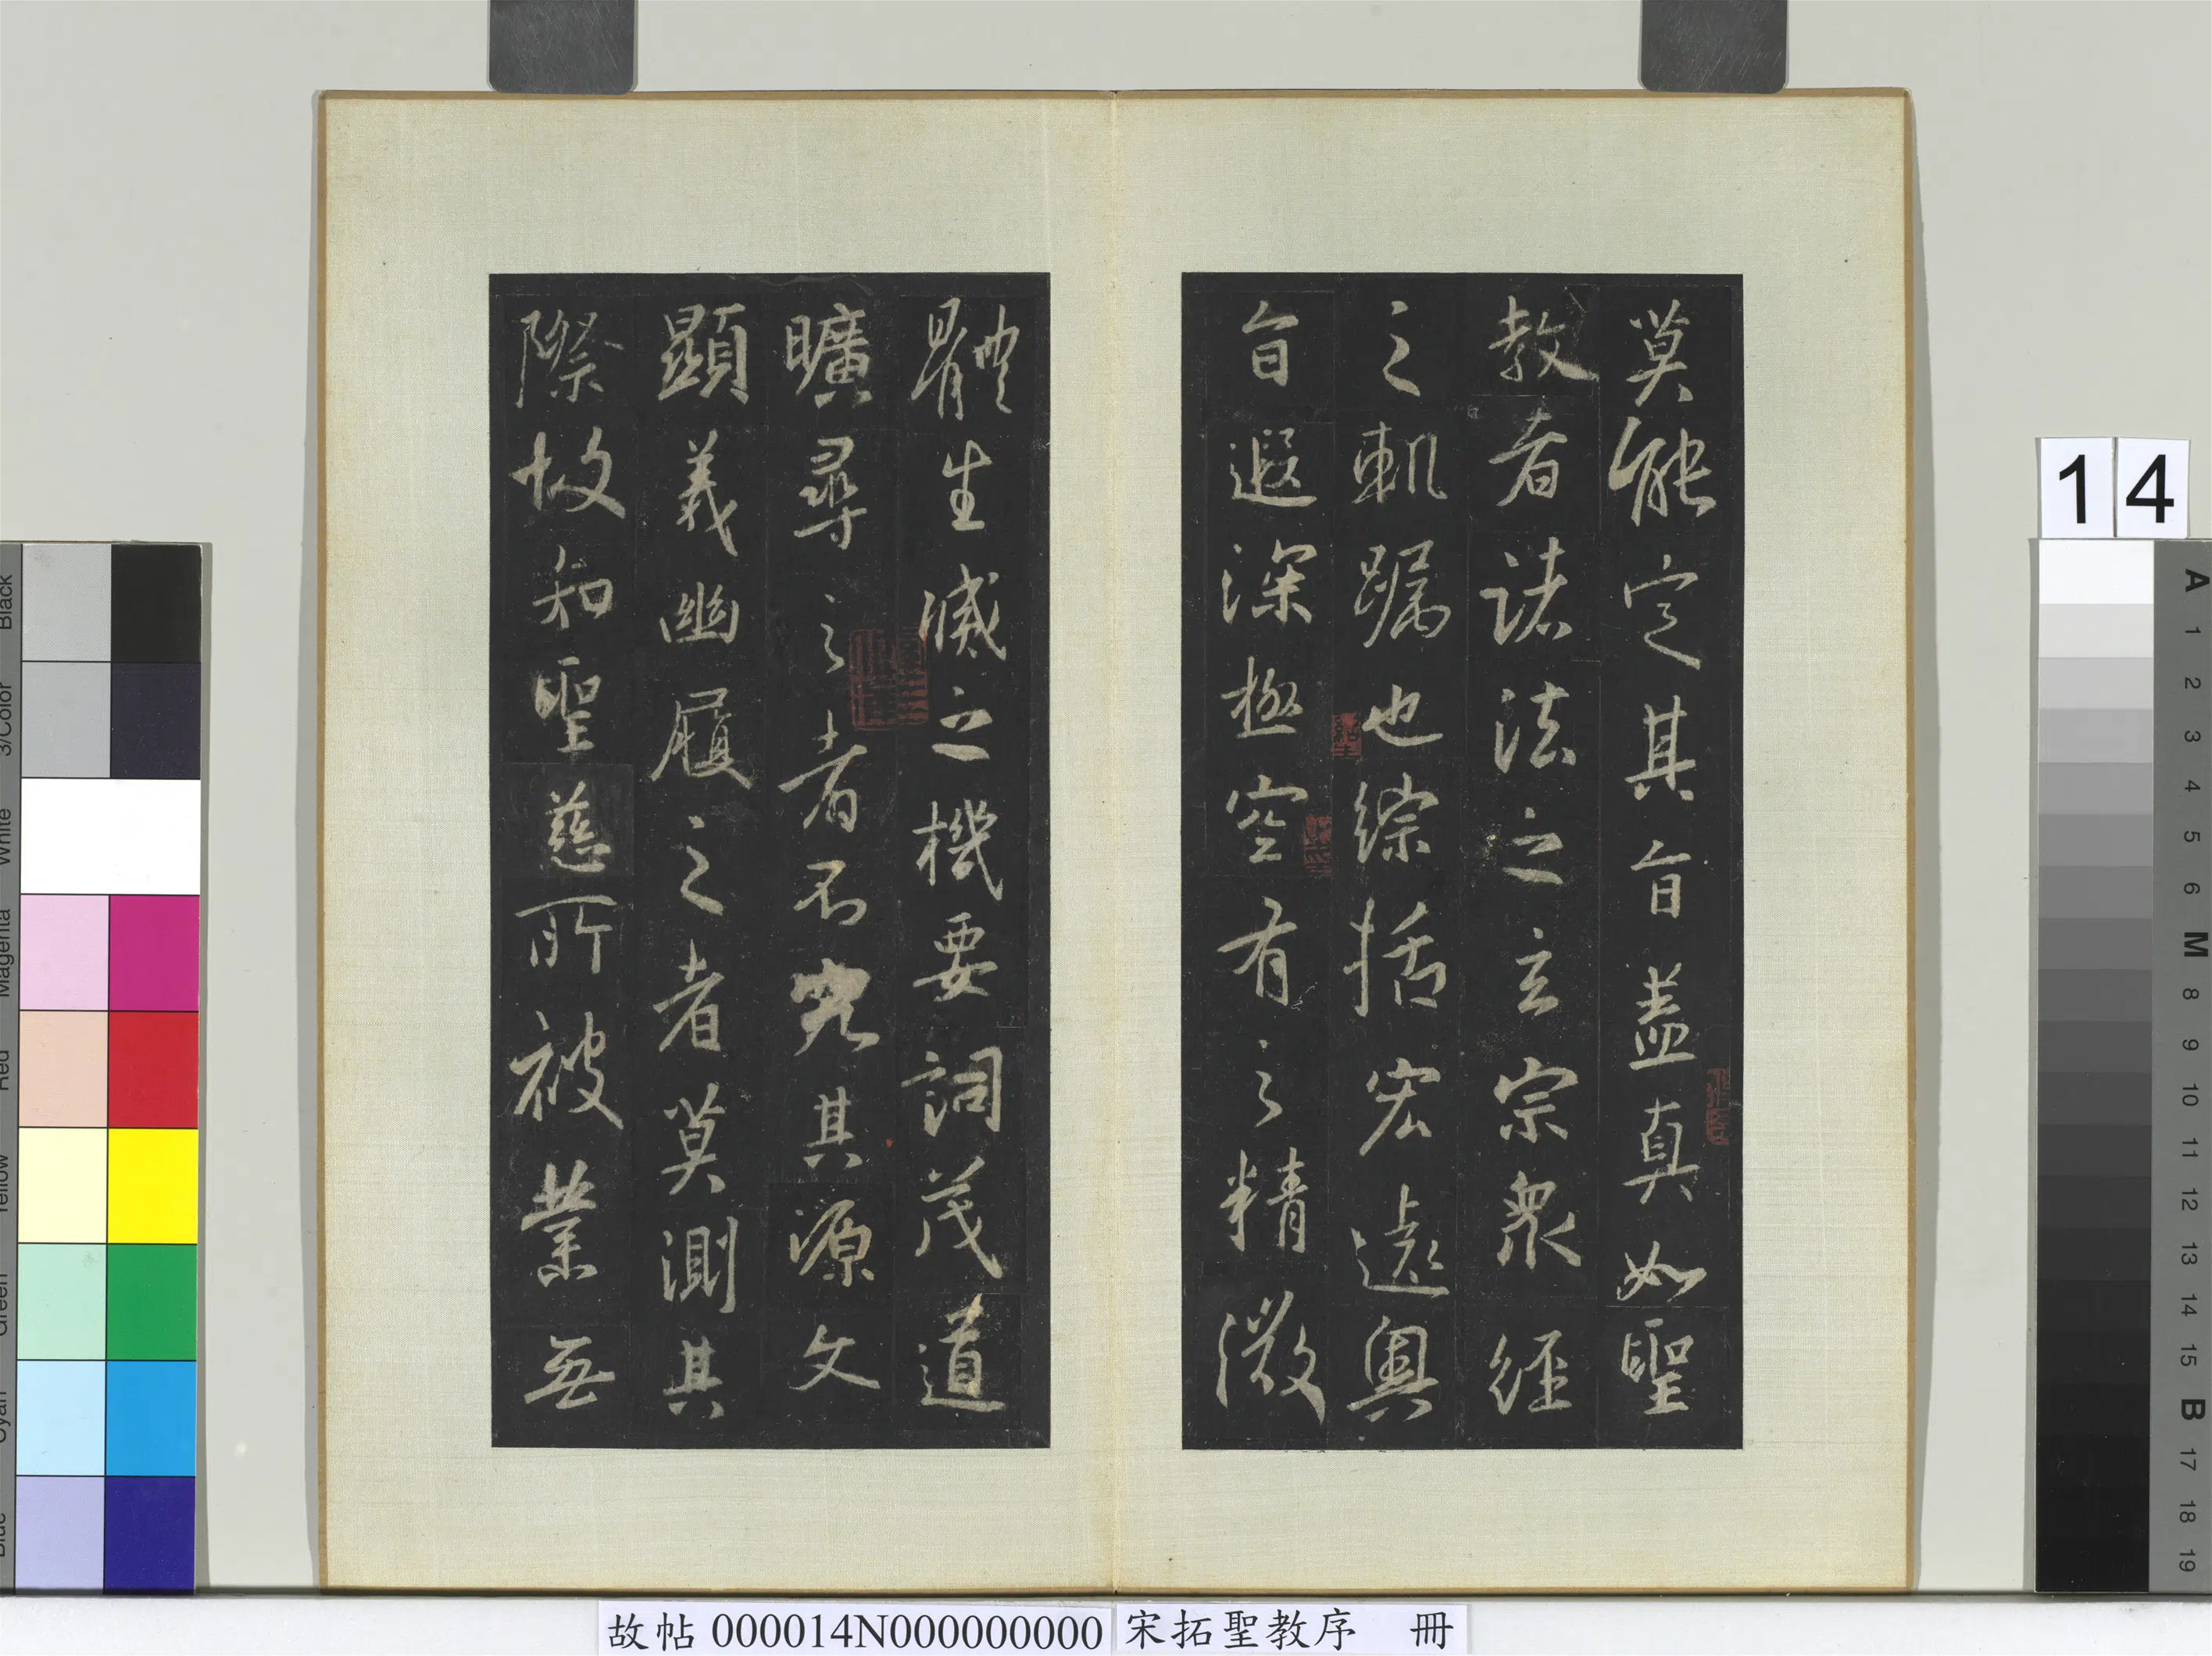 莫能定其旨蓋真如聖
教者諸法之玄宗衆經
之軌躅也綜括宏遠奧
旨遐深極空有之精微
體生滅之機要詞茂道
曠尋之者不究其源文
顯義幽履之者莫測其
際故知聖慈所被業無
14
A
1
2
3
4
5
6
M
8
9
10
11
12
13
14
15
B
17
18
19
Black
3/Color
White
Magenta
Red
Yellow
Green
Cyan
Blue
故帖 000014N000000000 宋拓聖教序 冊